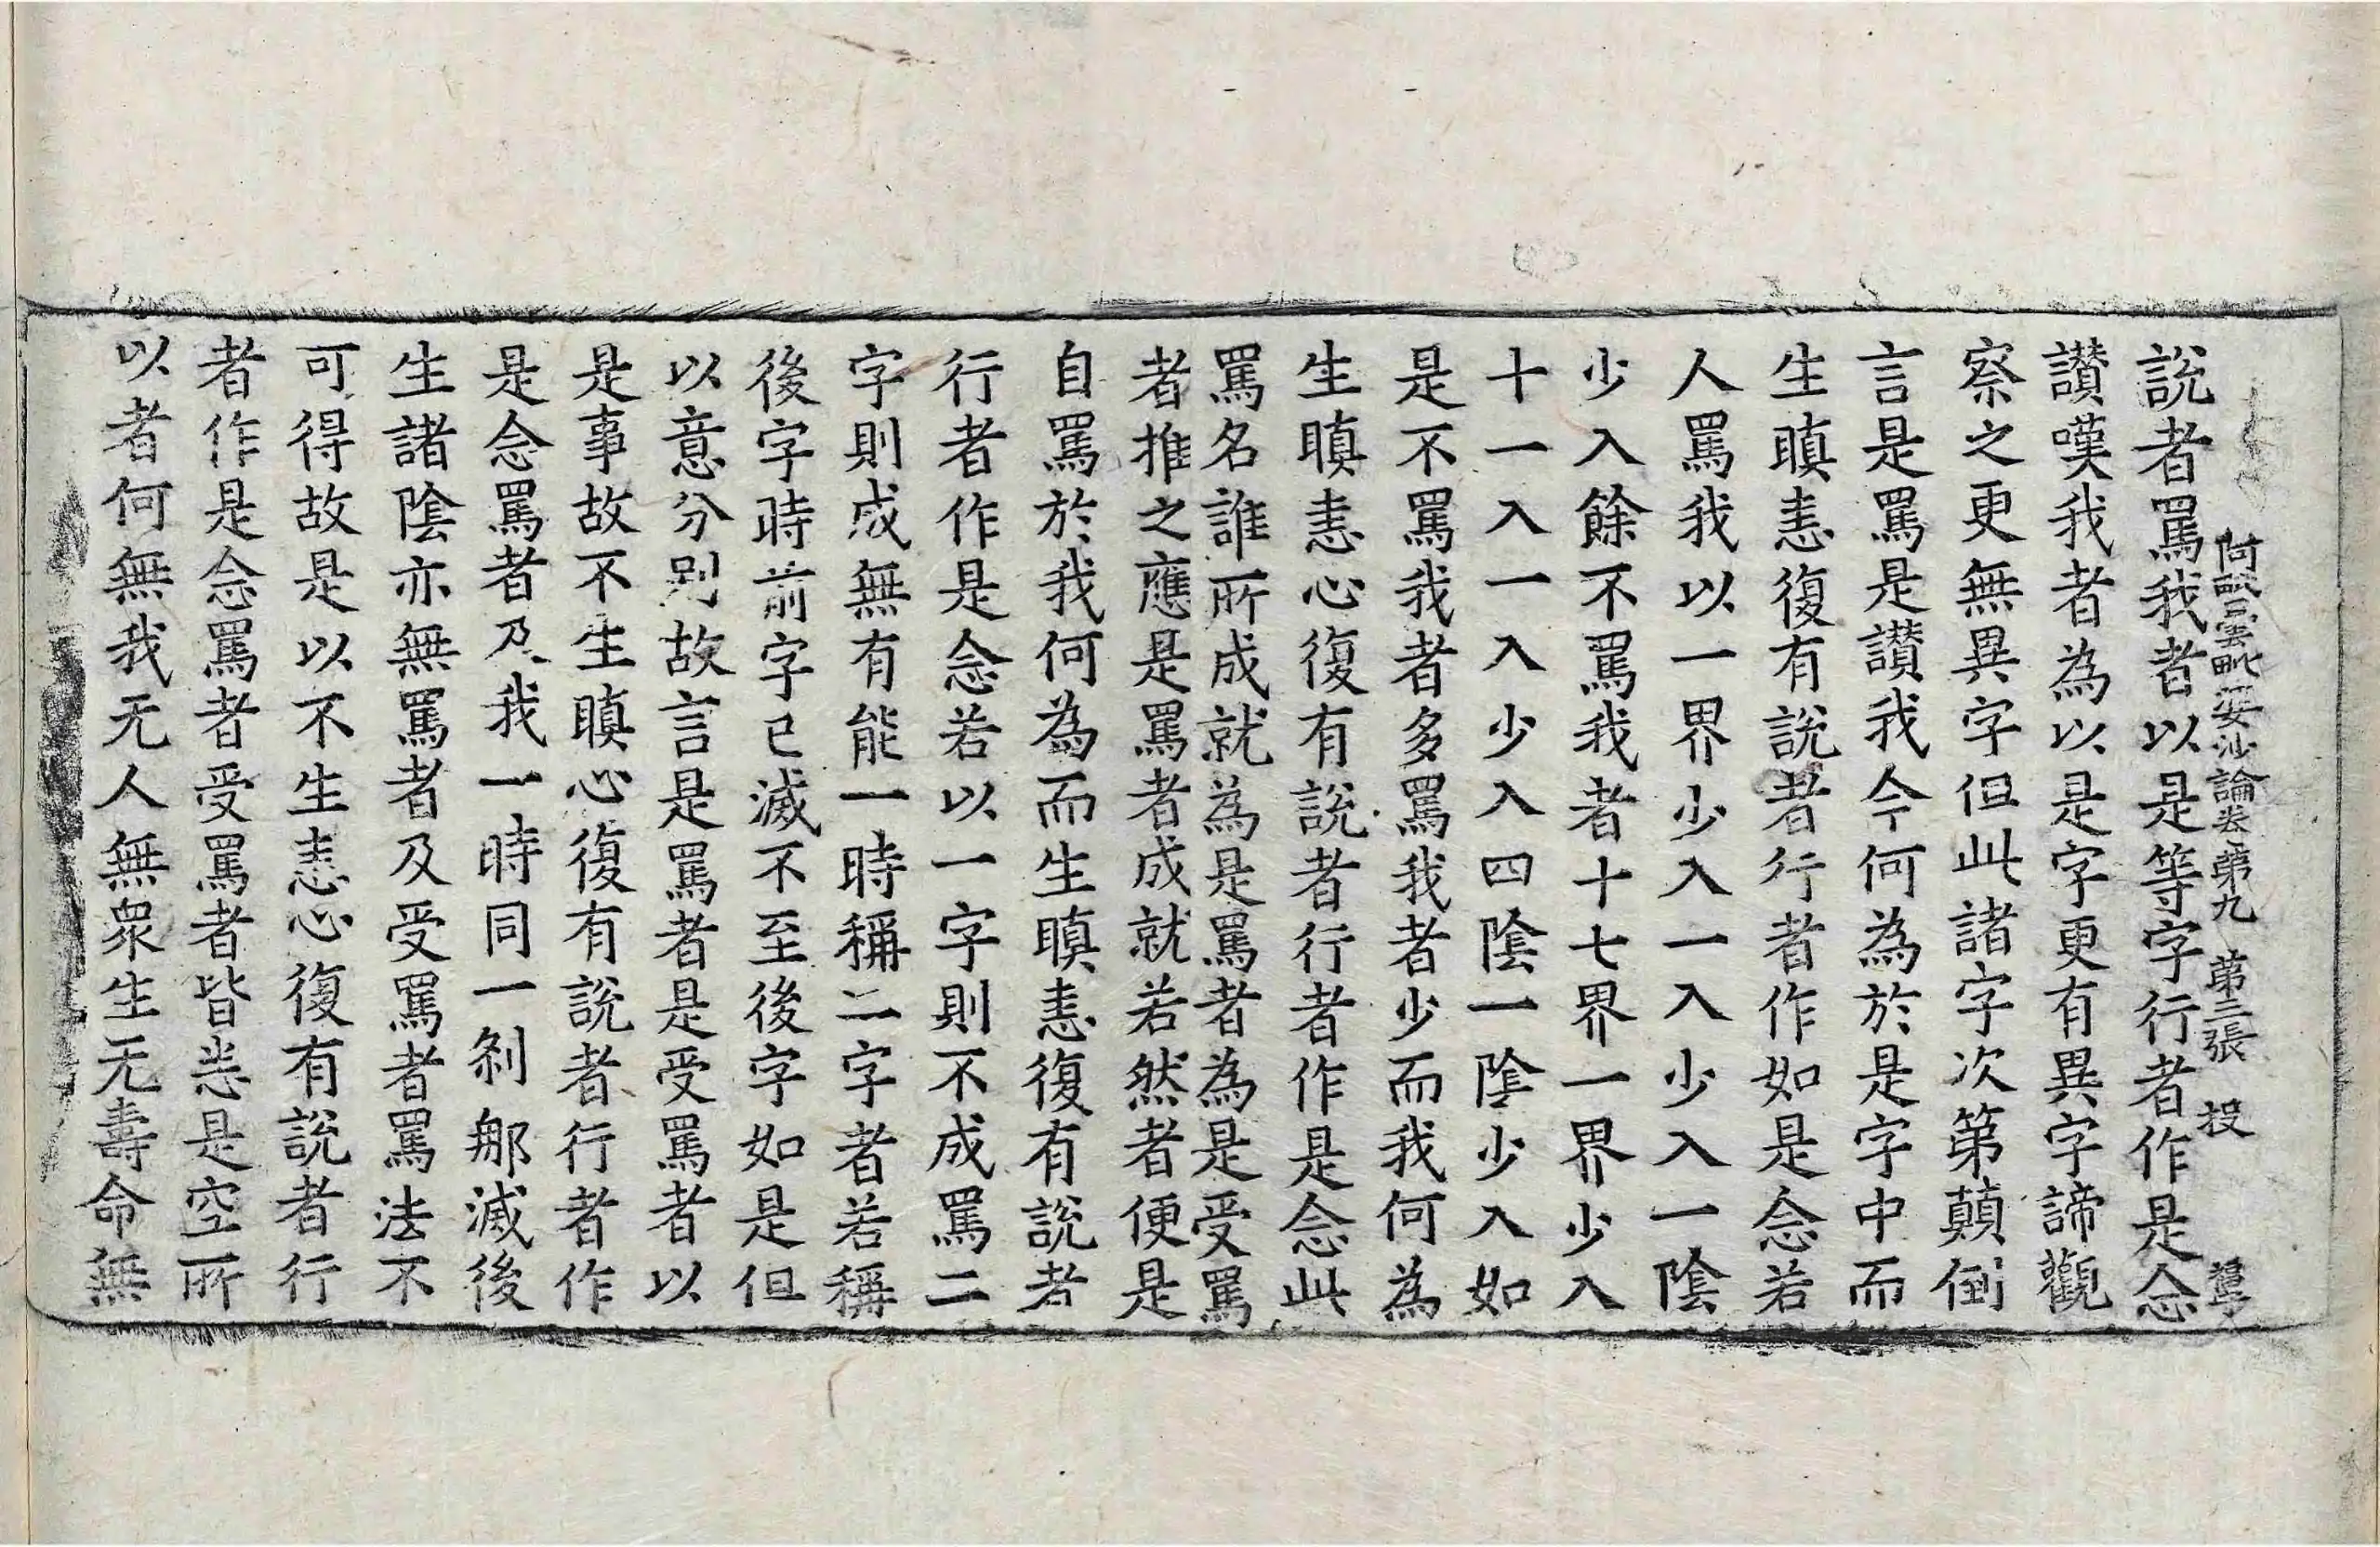 阿毗曇毗婆沙論卷第九　第三張　投
說者罵我者以是等字行者作是念
讃嘆我者為以是字更有異字諦觀
察之更無異字但此諸字次第顛倒
言是罵是讃我今何為於是字中而
生瞋恚復有說者行者作如是念若
人罵我以一界少入一入少入一陰
少入餘不罵我者十七界一界少入
十一入一入少入四陰一陰少入如
是不罵我者多罵我者少而我何為
生瞋恚心復有說者行者作是念此
罵名誰所成就為是罵者為是受罵
者推之應是罵者成就若然者便是
自罵於我何為而生瞋恚復有說者
行者作是念若以一字則不成罵二
字則成無有能一時稱二字者若稱
後字時前字已滅不至後字如是但
以意分別故言是罵者是受罵者以
是事故不生瞋心復有說者行者作
是念罵者及我一時同一剎那滅後
生諸陰亦無罵者及受罵者罵法不
可得故是以不生恚心復有說者行
者作是念罵者受罵者皆悉是空所
以者何無我无人無衆生无壽命無